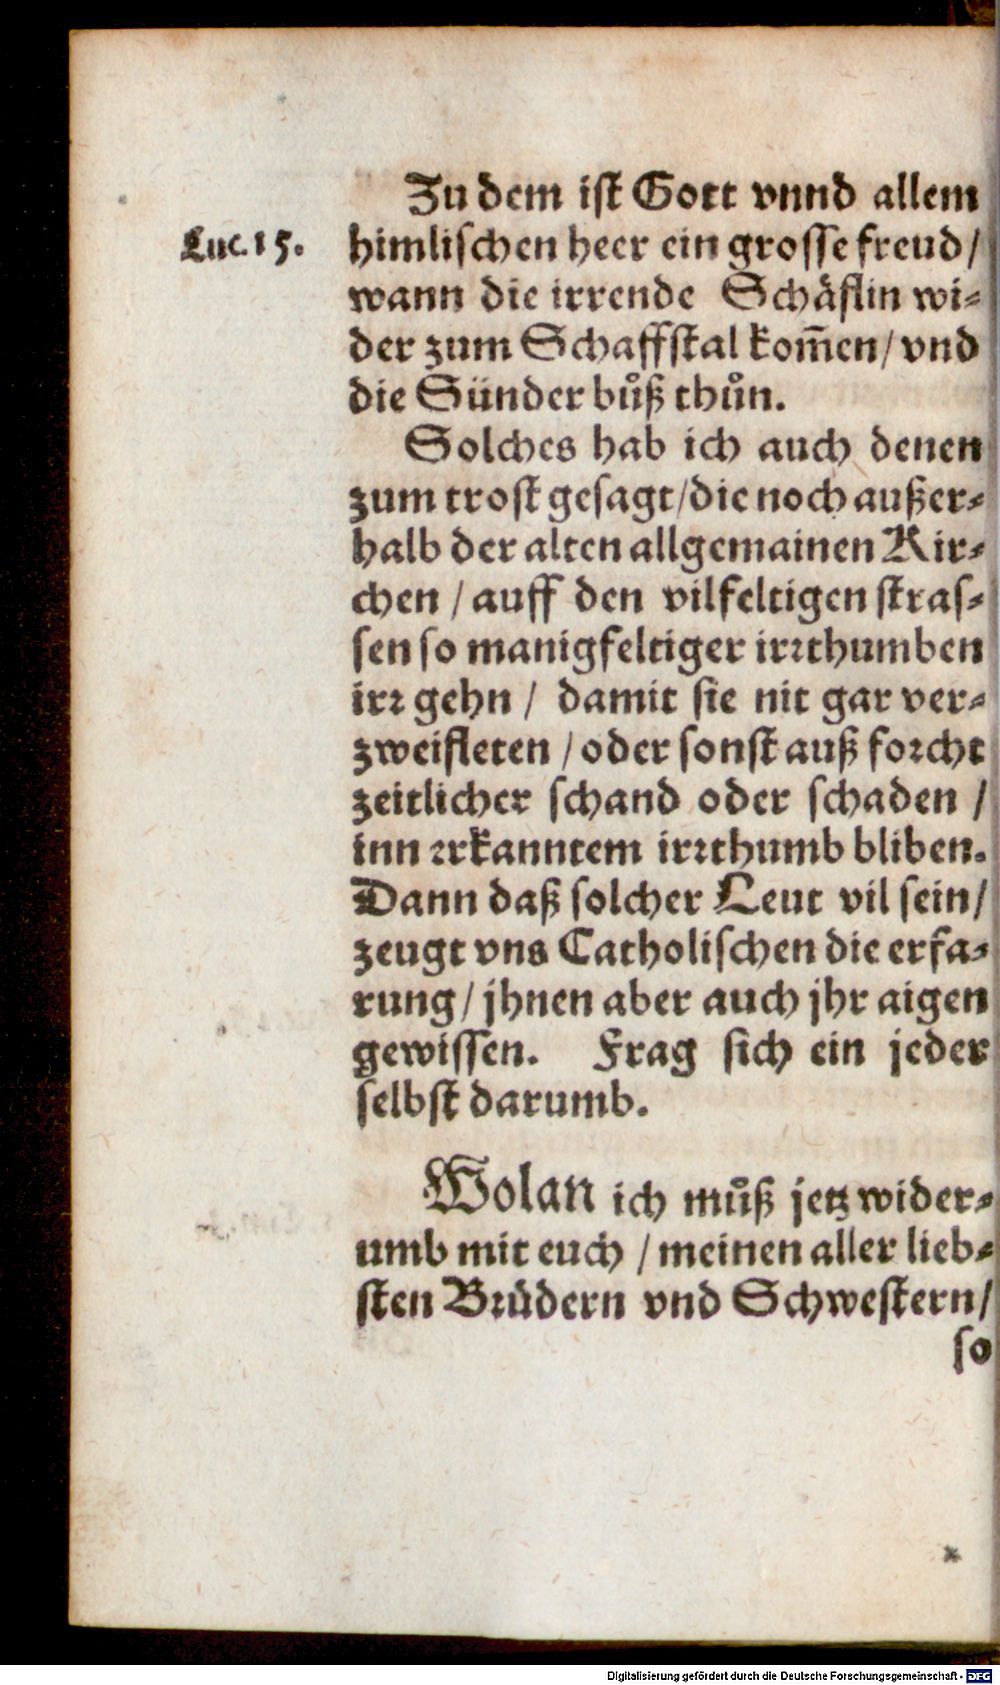 Zu dem ist Gott vnnd allem
Luc. 15. himlischen heer ein grosse freud/
wann die irrende Schäflin wi-
der zum Schaffstal kom̃en/ vnd
die Sünder bůß thůn.
Solches hab ich auch denen
zum trost gesagt/die noch außer-
halb der alten allgemainen Kir-
chen / auff den vilfeltigen stras-
sen so manigfeltiger irꝛthumben
irꝛ gehn / damit sie nit gar ver-
zweifleten / oder sonst auß foꝛcht
zeitlicher schand oder schaden /
inn erkanntem irꝛthumb bliben.
Dann daß solcher Leut vil sein/
zeugt vns Catholischen die erfa-
rung/ jhnen aber auch jhr aigen
gewissen. Frag sich ein jeder
selbst darumb.
Wolan ich můß jetz wider-
umb mit euch / meinen aller lieb-
sten Bꝛüdern vnd Schwestern/
so
Digitalisierung gefördert durch die Deutsche Forschungsgemeinschaft - DFG